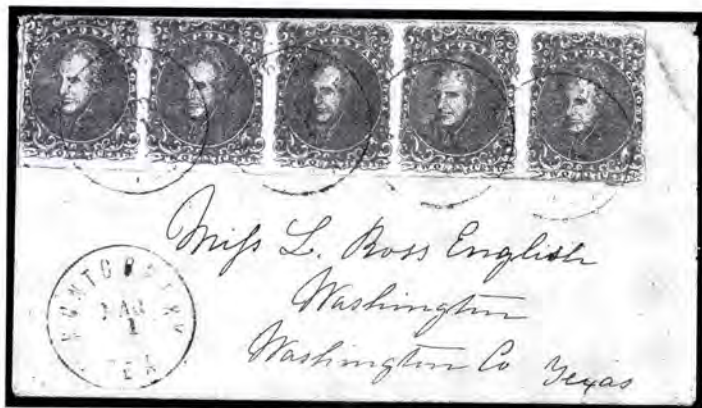 Miſs L. Ross English
Washington
Washington Co Texas
MONTGOMERY
MAR
1
TEX